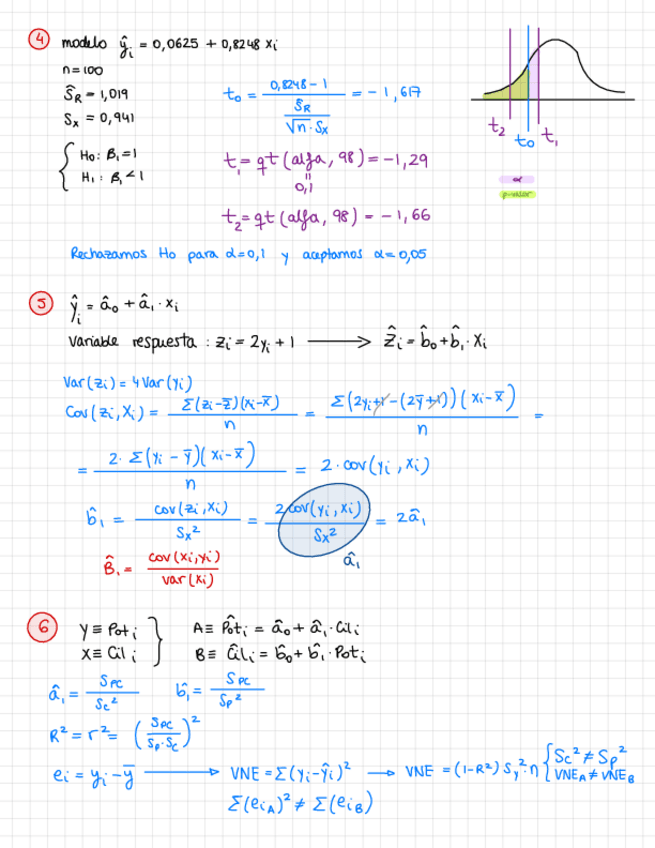 4 modelo ŷi = 0,0625 + 0,8248 xi
n=100
ŜR = 1,019
Sx = 0,941
H0: β1=1
H1: β1<1
t0 = (0,8248 - 1) / (ŜR / (√n · Sx)) = -1,617
t1 = qt (alfa, 98) = -1,29
0,1
t2 = qt (alfa, 98) = -1,66
t2 t0 t1
α
p-valor
Rechazamos H0 para α=0,1 y aceptamos α=0,05
5 ŷi = â0 + â1 · xi
Variable respuesta : zi = 2yi + 1 → ẑi = b̂0 + b̂1 · xi
Var(zi) = 4 Var(yi)
Cov(zi, xi) = Σ(zi - z̄)(xi - x̄) / n = Σ(2yi+1 - (2ȳ+1))(xi - x̄) / n =
= 2 · Σ(yi - ȳ)(xi - x̄) / n = 2 · cov(yi, xi)
b̂1 = cov(zi, xi) / Sx² = 2cov(yi, xi) / Sx² = 2â1
â1
B̂1 = cov(xi, yi) / var(xi)
6 Y ≡ Poti
X ≡ Cili
A ≡ P̂oti = â0 + â1 · Cili
B ≡ Ĉili = b̂0 + b̂1 · Poti
â1 = SPC / SC² b̂1 = SPC / SP²
R² = r² = (SPC / SP·SC)²
ei = yi - ȳ → VNE = Σ(yi - ŷi)² → VNE = (1-R²) Sy² · n { SC² ≠ SP²
VNEA ≠ VNEB
Σ(eiA)² ≠ Σ(eiB)